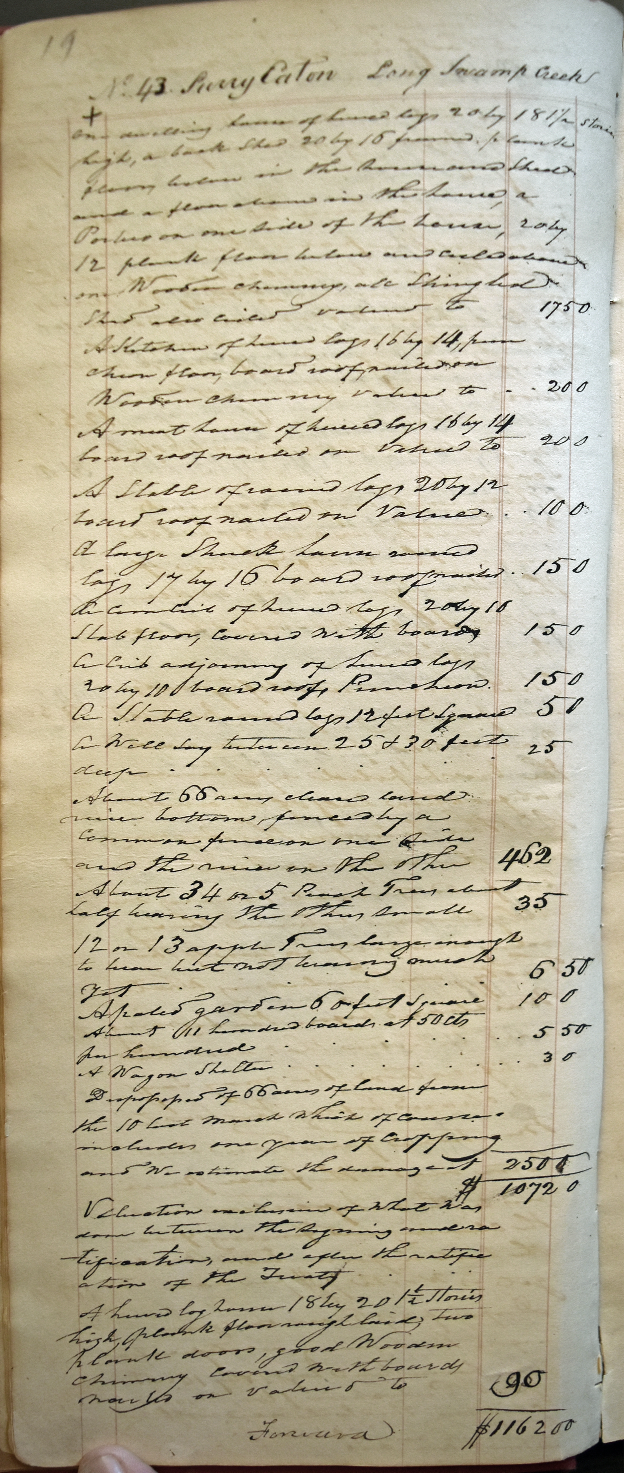 19
No. 43. Surry Eaton Long Swamp Creek
+
one dwelling house of hewed logs 20 by 18 1½ stories
high, a back Shed 20 by 16 framed. plank
floors below in the house and Shed
and a floor above in the house, a
Portico on one side of the house, 20 by
12 plank floor below and ceiled above
one Wooden chimney, all Shingled
Shed also ceiled valued to 175 0
A Kitchen of hewed logs 16 by 14, pun
cheon floor, board roof, nailed on
Wooden chimney value to - . 20 0
A meat house of hewed logs 16 by 14
board roof nailed on valued to 20 0
A Stable of round logs 20 by 12
board roof nailed on Value . . 10 0
A large Shuck house round
logs 17 by 16 board roof nailed . 15 0
A corn crib of hewed logs 20 by 10
Slab floor, covered with boards 15 0
A Crib adjoining of hewed logs
20 by 10 board roof, Puncheon. 15 0
A Stable round logs 12 feet Square 5 0
A Well say between 25 & 30 feet 25
deep . . . . .
About 66 acres cleared land
river bottom, fenced by a
common fence on one side
and the river on the other 462
About 34 or 5 Peach Trees about
half bearing the others small 35
12 or 13 apple Trees large enough
to bear but not bearing much
yet 6 50
A paled garden 60 feet Square 10 0
About 11 hundred boards at 50 cts
per hundred . . . . . . 5 50
A Wagon Shelter . . . . . 3 0
Dispossessed of 66 acres of land from
the 10 last March which of course
includes one year of cropping
and We estimate the damage at 250 0
$ 1072 0
Valuation exclusive of what was
done between the signing and ra
tification, and after the ratific
ation of the Treaty . . .
A hewed log house 18 by 20 1½ Stories
high, plank floor rough laid, two
plank doors, good Wooden
chimney covered with boards
nailed on valued to 90
Forward $1162 00